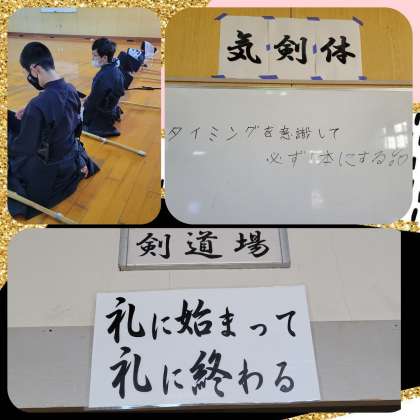 気剣体
タイミングを意識して
必ず1本にする
剣道場
礼に始まって
礼に終わる